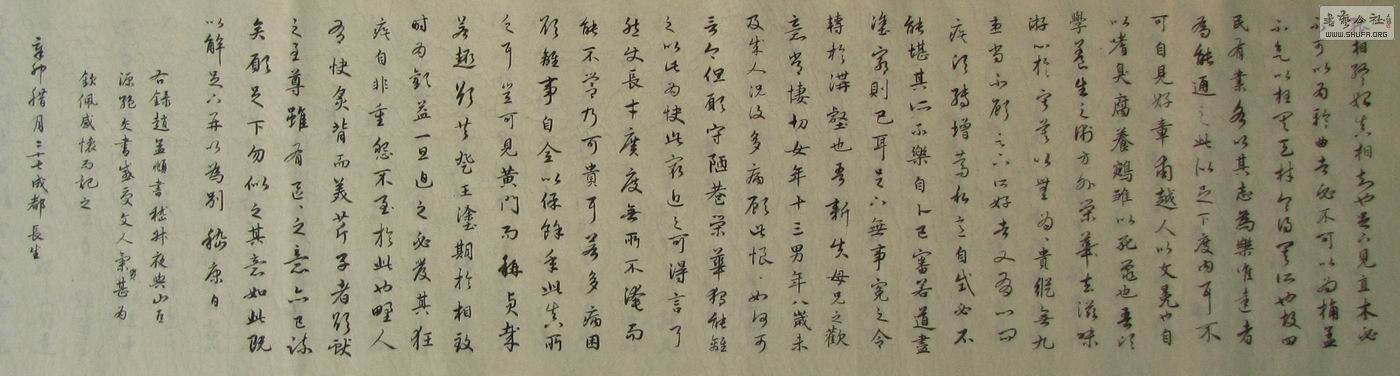 相終始真相知者也足下見直木必
不可以為輪曲者必不可以為桷蓋
不見以枉其天材令得其所也故四
民有業各以其志為樂惟達者
為能通之此似足下度內耳不
可自見好章甫越人以文冕也自
以嗜臭腐養鵷雛以死鼠也吾頃
學養生之術方外榮華去滋味
游心於寂寞以無為為貴縱無九
患尚不顧足下所好者又有心悶
疾頃轉增篤私意自試必不
能堪其所不樂自卜已審若道盡
塗窮則已耳足下無事冤之令
轉於溝壑也吾新失母兄之歡
意常悽切女年十三男年八歲未
及成人況復多病顧此悢悢如何可
言今但願守陋巷榮華獨能離
之以此為快此最近之可得言耳
然使長才廣度無所不淹而
能不營乃可貴耳若多病困
欲離事自全以保餘年此真所
乏耳豈可見黃門而稱貞哉
若趣欲共登王塗期於相致
時為歡益一旦迫之必發其狂
疾自非重怨不至於此也野人
有快炙背而美芹子者欲獻
之至尊雖有區區之意亦已疎
矣願足下勿似之其意如此既
以解足下并以為別 嵇康白
右錄趙孟頫書嵇叔夜與山巨
源絕交書感受文人氣甚為
欽佩感懷而記之
辛卯臘月二十七成都長生
書藝公社
WWW.SHUFA.ORG